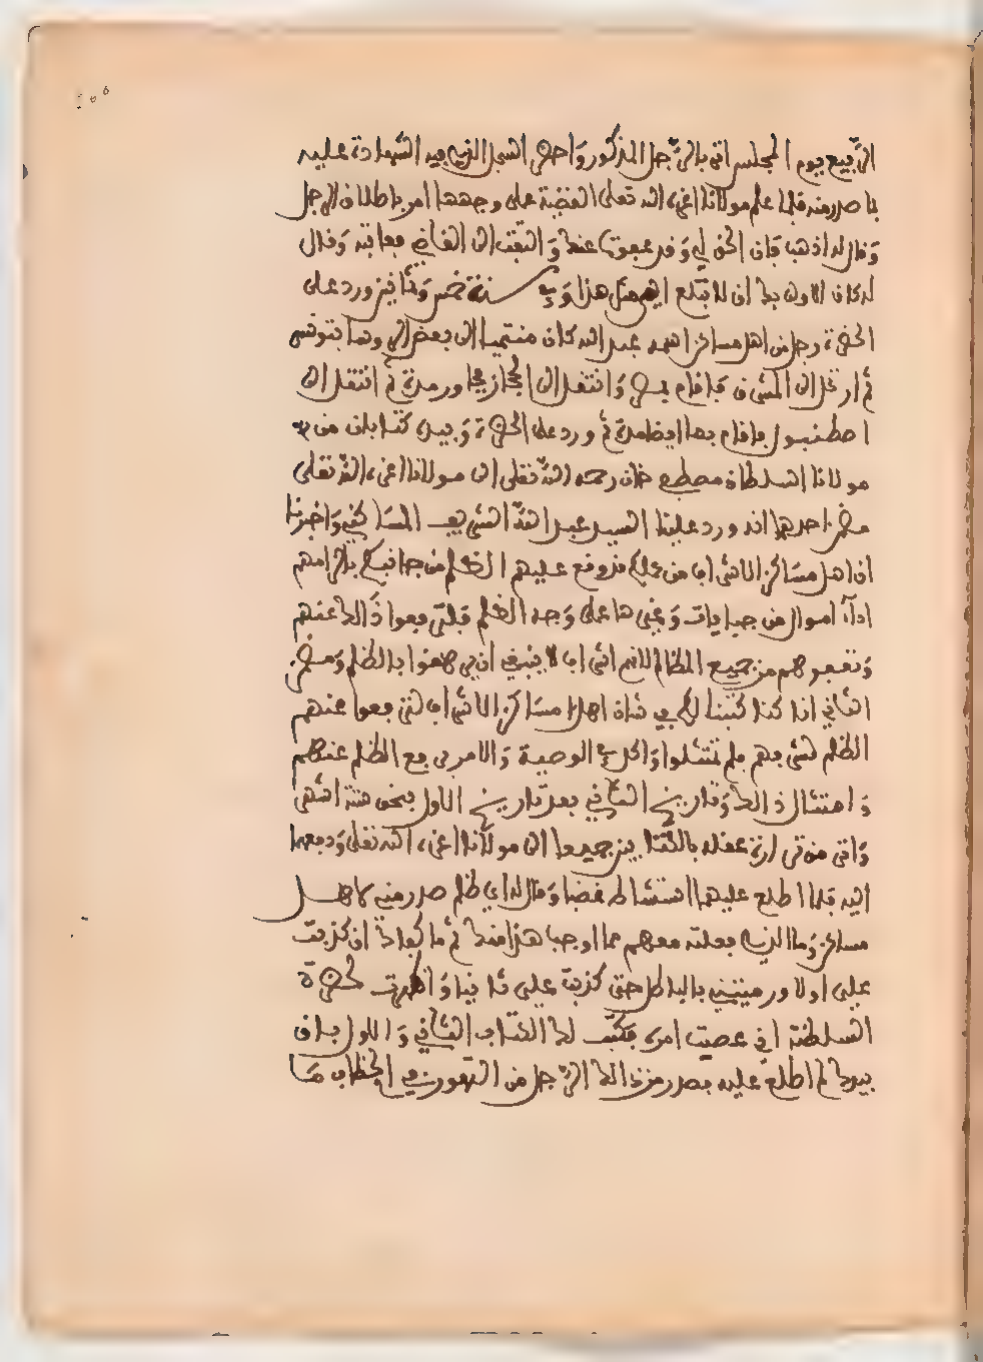 الربيع يوم المجلس اتى بالرجل المذكور واحضر السجل الذي فيه الشهادة عليه
بما صدر منه فلما علم مولانا اعزه الله تعلى القضية على وجهها امر باطلاق الرجل
وقال له اذهب فان الحق لي وقد عفوت عنك والتفت الى القاضي فعاتبه وقال
له كان الاولى بك ان لا تبلغ الي مثل هذا وفي سنة خمس وثمانين ورد على
الحضرة رجل من اهل مساكن اسمه عبد الله كان منتميا الى بعض وهما بتونس
ثم ارتحل الى المشرق فاقام بمصر وانتقل الى الحجاز مجاور مدة ثم انتقل الى
اصطنبول فاقام بها ايضا مدة ثم ورد على الحضرة وبيده كتابان من
مولانا السلطان مصطفى خان رحمه الله تعلى الى مولانا اعزه الله تعلى
مضمن احدهما انه ورد علينا السيد عبد الله الشريف المساكني واخبرنا
ان اهل مساكن الاشراف من عملكم قد وقع عليهم الظلم من جانبكم بالزامهم
اداء اموال من جبايات وغيرها على وجه الظلم فلترفعوا ذالك عنهم
وتعفوهم من جميع المظالم لانهم اشراف لا ينبغي ان يرهقوا بالظلم ومضمن
الثاني انا كنا كتبنا لكم في شان اهل مساكن الاشراف لترفعوا عنهم
الظلم لشرفهم فلم تمتثلوا واكد في الوصية والامر برفع الظلم عنهم
وامتثال ذالك وتاريخ الثاني بعد تاريخ الاول بنحو ستة اشهر
واتى من قرارة عقله بالكتابين جميعا الى مولانا اعزه الله تعلى ودفعهما
اليه فلما اطلع عليهما استشاط غضبا وقال له اي ظلم صدر مني لاهل
مساكن وما الذي فعلته معهم مما اوجب هذا منك ثم ما كفاك ان كذبت
علي اولا ورميتني بالباطل حتى كذبت علي ثانيا واظهرت لحضرة
السلطنة اني عصيت امره فكتب لك الكتاب الثاني والاول باق
بيدك لم اطلع عليه فصدر من ذالك الرجل من التهور في الخطاب ما